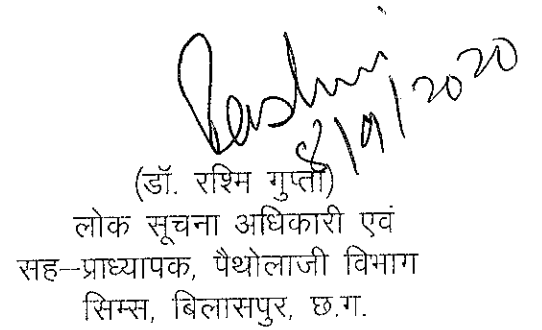 Rashmi
8/9/2020
(डॉ. रश्मि गुप्ता)
लोक सूचना अधिकारी एवं
सह–प्राध्यापक, पैथोलाजी विभाग
सिम्स, बिलासपुर, छ.ग.